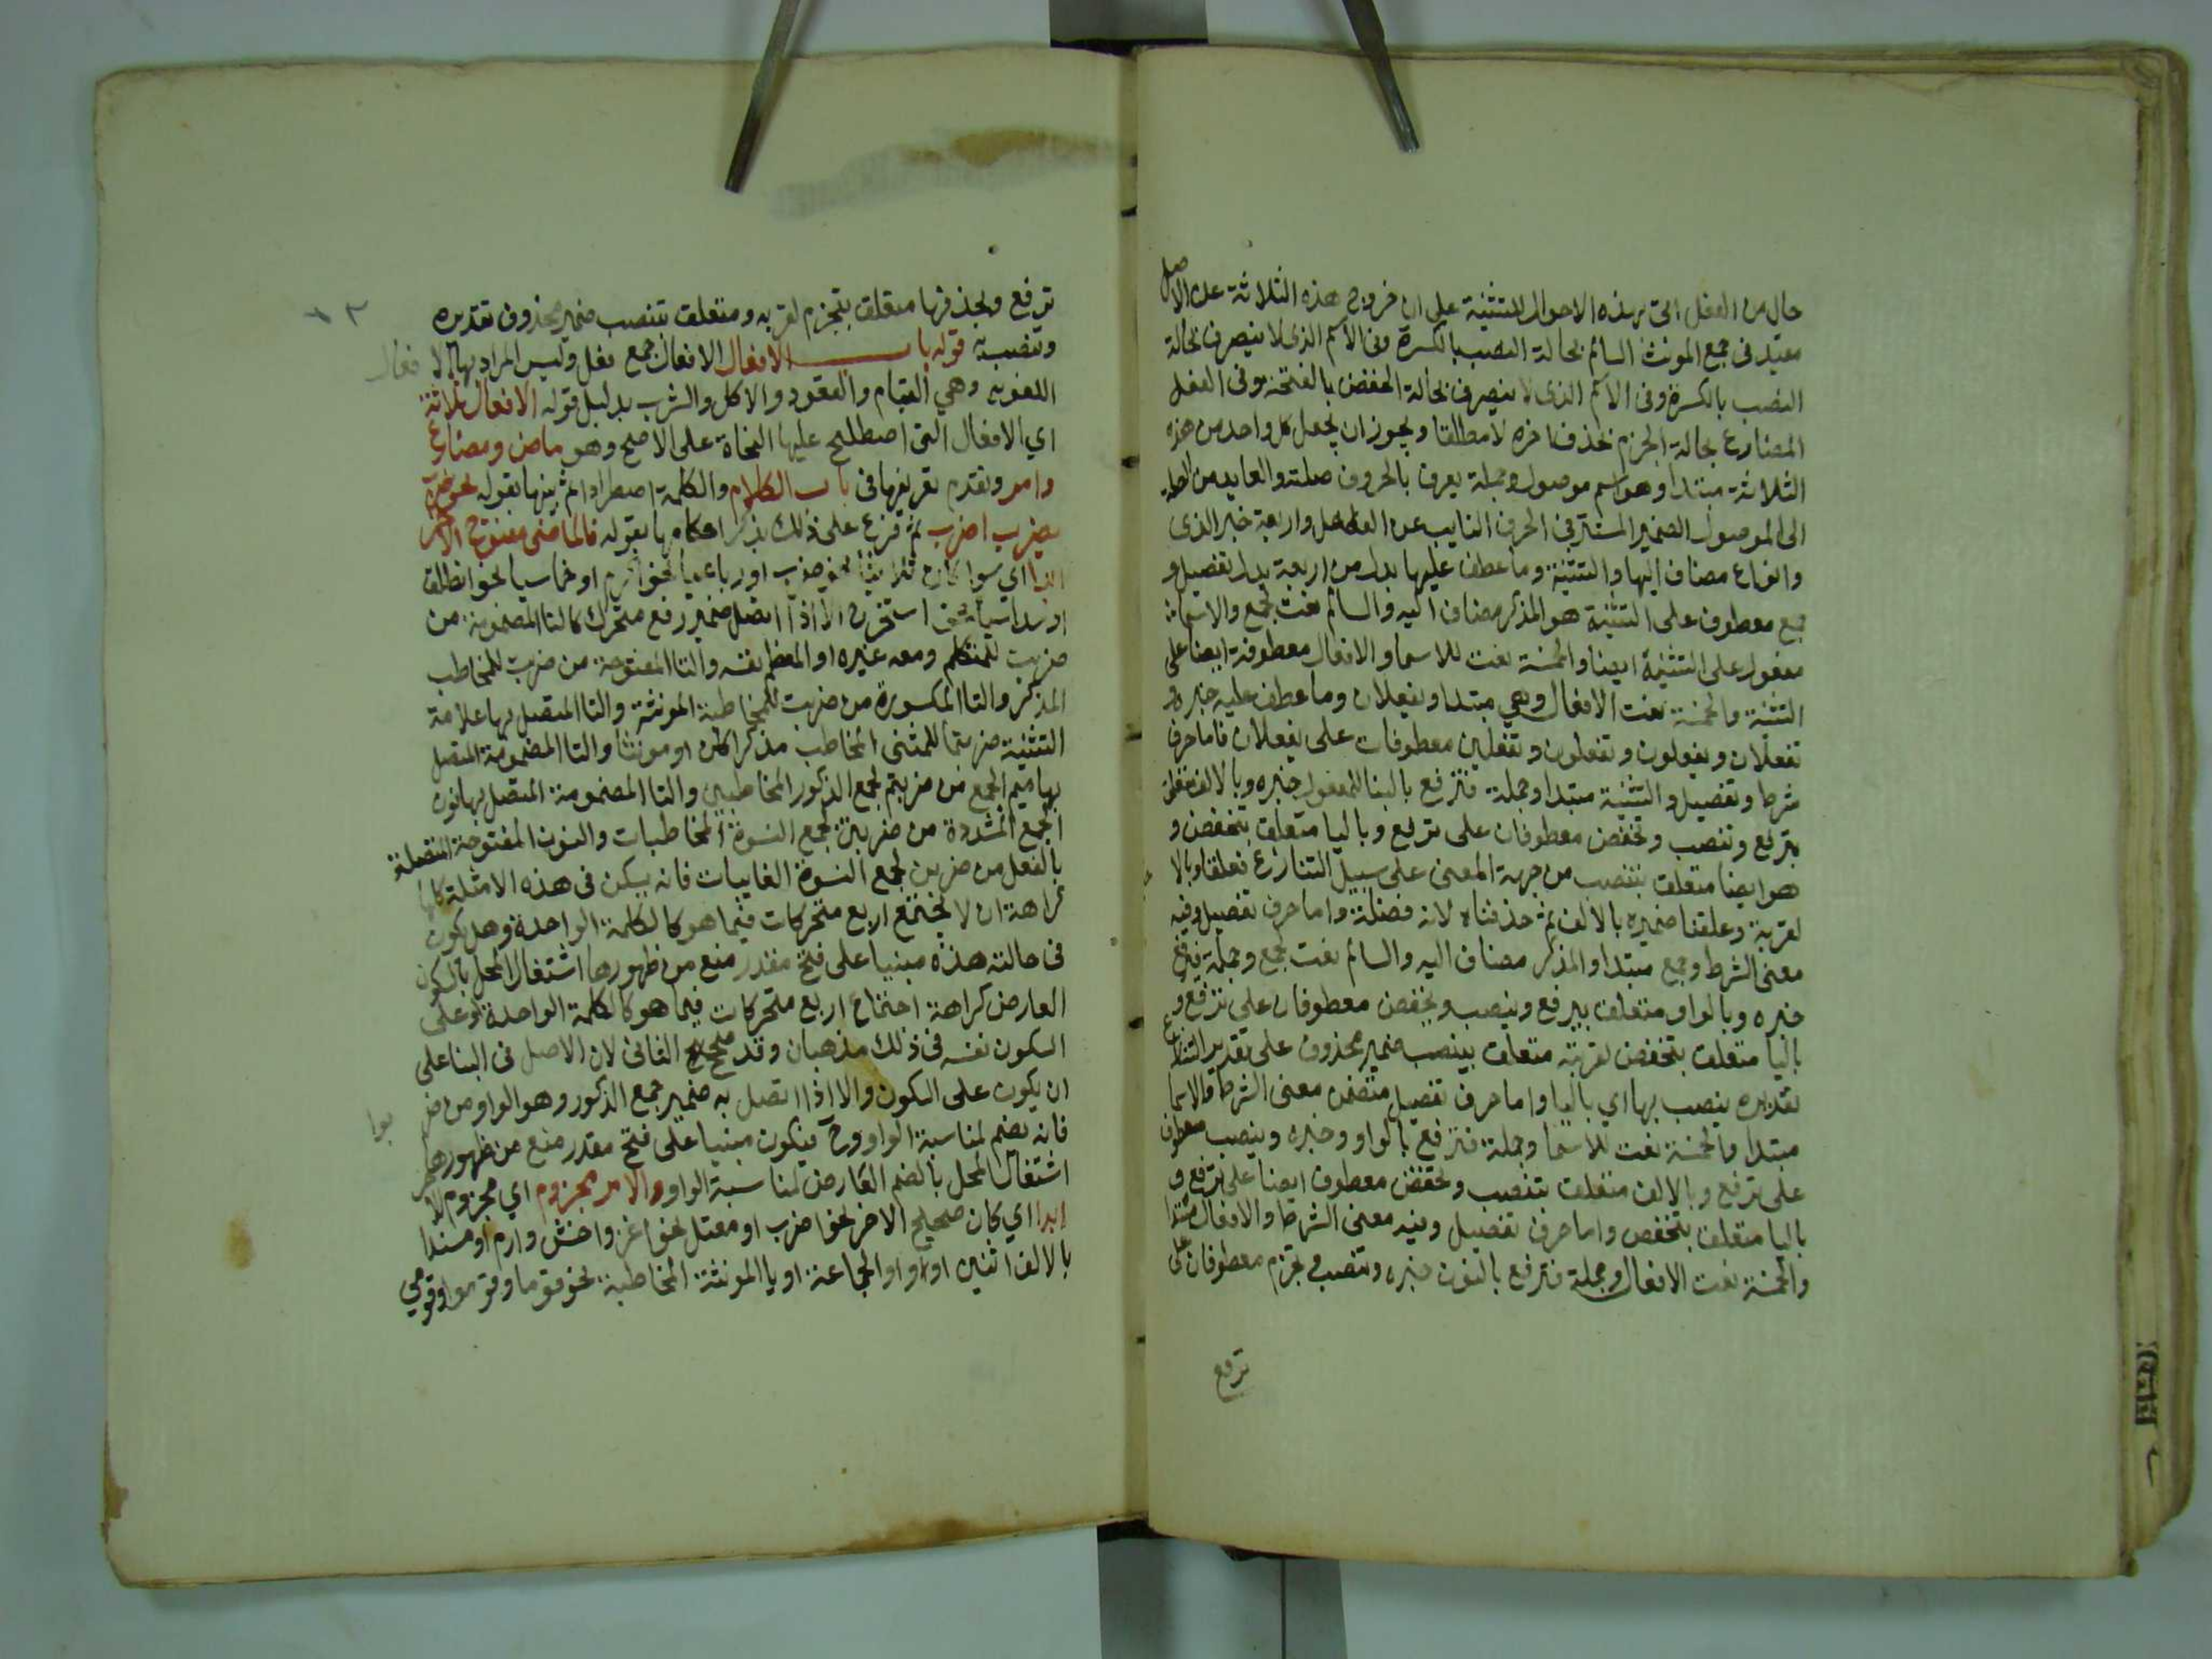 حال من الفعل اتى بهذه الاحوال للتثنية على ان خروج هذه الثلاثة عن الاصل
مقيد فى جمع المونث السالم بحالة النصب بالكسرة وفى الاسم الذى لا ينصرف بحالة
النصب بالكسرة وفى الاسم الذى لا ينصرف بحالة الخفض بالفتحة وفى الفعل
المضارع بحالة الجزم بحذف اخره لا مطلقا ويجوز ان يجعل كل واحد من هذه
الثلاثة مبتدا وهو اسم موصول وجملة يعرب بالحروف صلته والعايد من الصلة
الى الموصول الضمير المستتر فى الحرف النايب عن الفاعل واربعة خبر الذى
وانواع مضاف اليها والتثنية وما عطف عليها بدل من اربعة بدل تفصيل و
جمع معطوف على التثنية هو المذكر مضاف اليه والسالم نعت لجمع والاسما
معفول على التثنية ايضا والخمسة نعت للاسما والافعال معطوفة ايضا على
التثنية والخمسة نعت الافعال وهي مبتدا ويفعلان وما عطف عليه خبره و
تفعلان ويفعلون وتفعلون وتفعلين معطوفات على يفعلان فاما حرف
شرط وتفصيل والتثنية مبتدا وجملة فترفع بالبنا للمفعول خبره وبالالف متعلق
بترفع وتنصب وتخفض معطوفان على ترفع وباليا متعلق بتخفض و
هو ايضا متعلق بتنصب من جهة المعنى على سبيل التنازع تعلقا وبالا
لقربة وعلقنا ضميره بالالف ثم حذفناه لانه فضلة واما حرف تفصيل وفيه
معنى الشرط وجمع مبتدا والمذكر مضاف اليه والسالم نعت لجمع وجملة فيرفع
خبره وبالواو متعلق بيرفع وينصب ويخفض معطوفان على ترفع و
باليا متعلق بتخفض لقربته متعلق بينصب ضمير محذوف على تقدير التنازع
تقديره ينصب بها اي باليا واما حرف تفصيل متضمن معنى الشرط والاسما
مبتدا والخمسة نعت للاسما وجملة فترفع بالواو وخبره وينصب معطوف
على ترفع وبالالف متعلق بتنصب وتخفض معطوف ايضا على ترفع و
باليا متعلق بتخفض واما حرف تفصيل وفيه معنى الشرط والافعال مبتدا
والخمسة نعت الافعال وجملة فترفع بالنون خبره وتنصب وتجزم معطوفان على
ترفع
ترفع وبحذفها متعلق بتجزم لقربه ومتعلق بتنصب ضمير محذوف تقديره
وتنصب به قوله باب الافعال الافعال جمع فعل وليس المراد بها الافعال
اللغويه وهي القيام والقعود والاكل والشرب بدليل قوله الافعال ثلاثة
اي الافعال التى اصطلح عليها النحاة على الاصح وهو ماض ومضارع
وامر وتقدم تعريفها فى باب الكلام والكلمة اصطرادا ثم بينها بقوله نحو ضرب
يضرب اضرب ثم فرع على ذلك بذكر احكامها بقوله فالماضى مفتوح الاخر
ابدا اي سوا كان ثلاثيا نحو ضرب او رباعيا نحو اكرم او خماسيا نحو انطلق
او سداسيا نحو استخرج الا اذا اتصل ضمير رفع متحرك كالتا المضمومة من
ضربت للمتكلم ومعه غيره او المعظم نفسه والتا المفتوحة من ضربت للمخاطب
المذكر والتا المكسورة من ضربت للمخاطبة المونثة والتا المتصل بها علامة
التثنية ضربتما للمثنى المخاطب مذكرا كان او مونثا والتا المضمومة المتصل
بها ميم الجمع من ضربتم لجمع الذكور المخاطبين والتا المضمومة المتصل بها نون
الجمع المشددة من ضربتن لجمع النسوة المخاطبات والنون المفتوحة المتصلة
بالفعل من ضربن لجمع النسوة الغايبات فانه يسكن فى هذه الامثلة كلها
كراهة ان لا يجتمع اربع متحركات فيما هو كالكلمة الواحدة وهل يكون
فى حالته هذه مبنيا على فتح مقدر منع من ظهورها اشتغال المحل بالسكون
العارض كراهة اجتماع اربع متحركات فيما هو كالكلمة الواحدة او على
السكون نفسه فى ذلك مذهبان وقد صحح الثانى لان الاصل فى البنا على
ان يكون على السكون والا اذا اتصل به ضمير جمع الذكور وهو الواو من ضربوا
فانه يضم لمناسبة الواو وح فيكون مبنيا على فتح مقدر منع من ظهورها
اشتغال المحل بالضم العارض لمناسبة الواو والامر مجزوم اي مجزوم الاخر
ابدا اي كان صحيح الاخر نحو اضرب او معتل نحو اغز واخش وارم او مسندا
بالالف اثنين او واو الجماعة او يا المونثة المخاطبة نحو قوما وقوموا وقومي